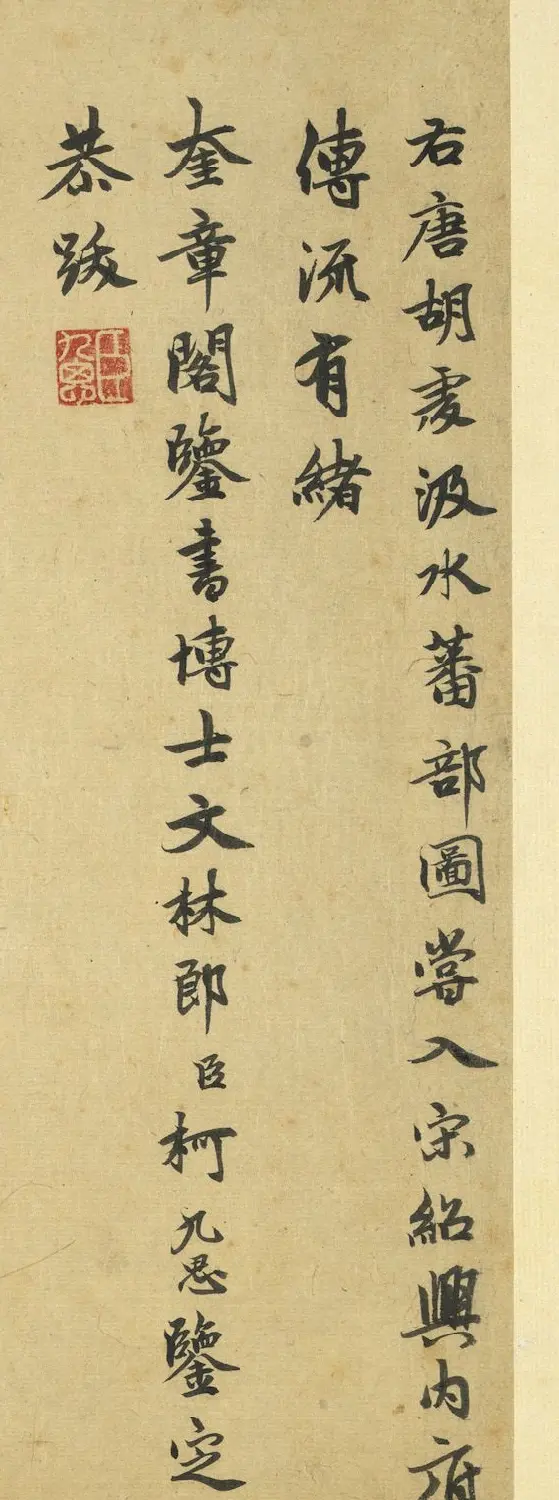 右唐胡虔汲水蕃部圖嘗入宋紹興內府
傳流有緒
奎章閣鑒書博士文林郎臣柯九思鑒定
恭跋